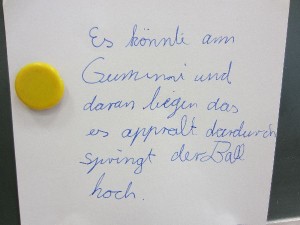 Es könnte am
Gummi und
daran liegen das
es appralt dardurch
springt der Ball
hoch.